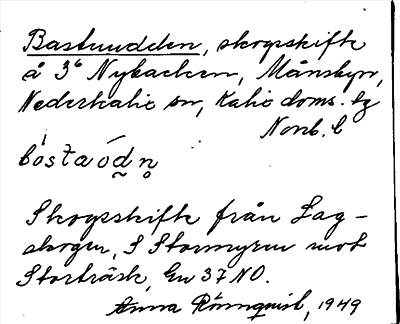 Bastuudden, skogsskifte
å 3⁶ Nybacken, Månsbyn,
Nederkalix sn, Kalix doms. tg
Norrb. l
bòstaódn̥
Skogsskifte från Lag-
skogen, S Stormyren mot
Storträsk, Ev 37 NO.
Anna Rönnquist, 1949